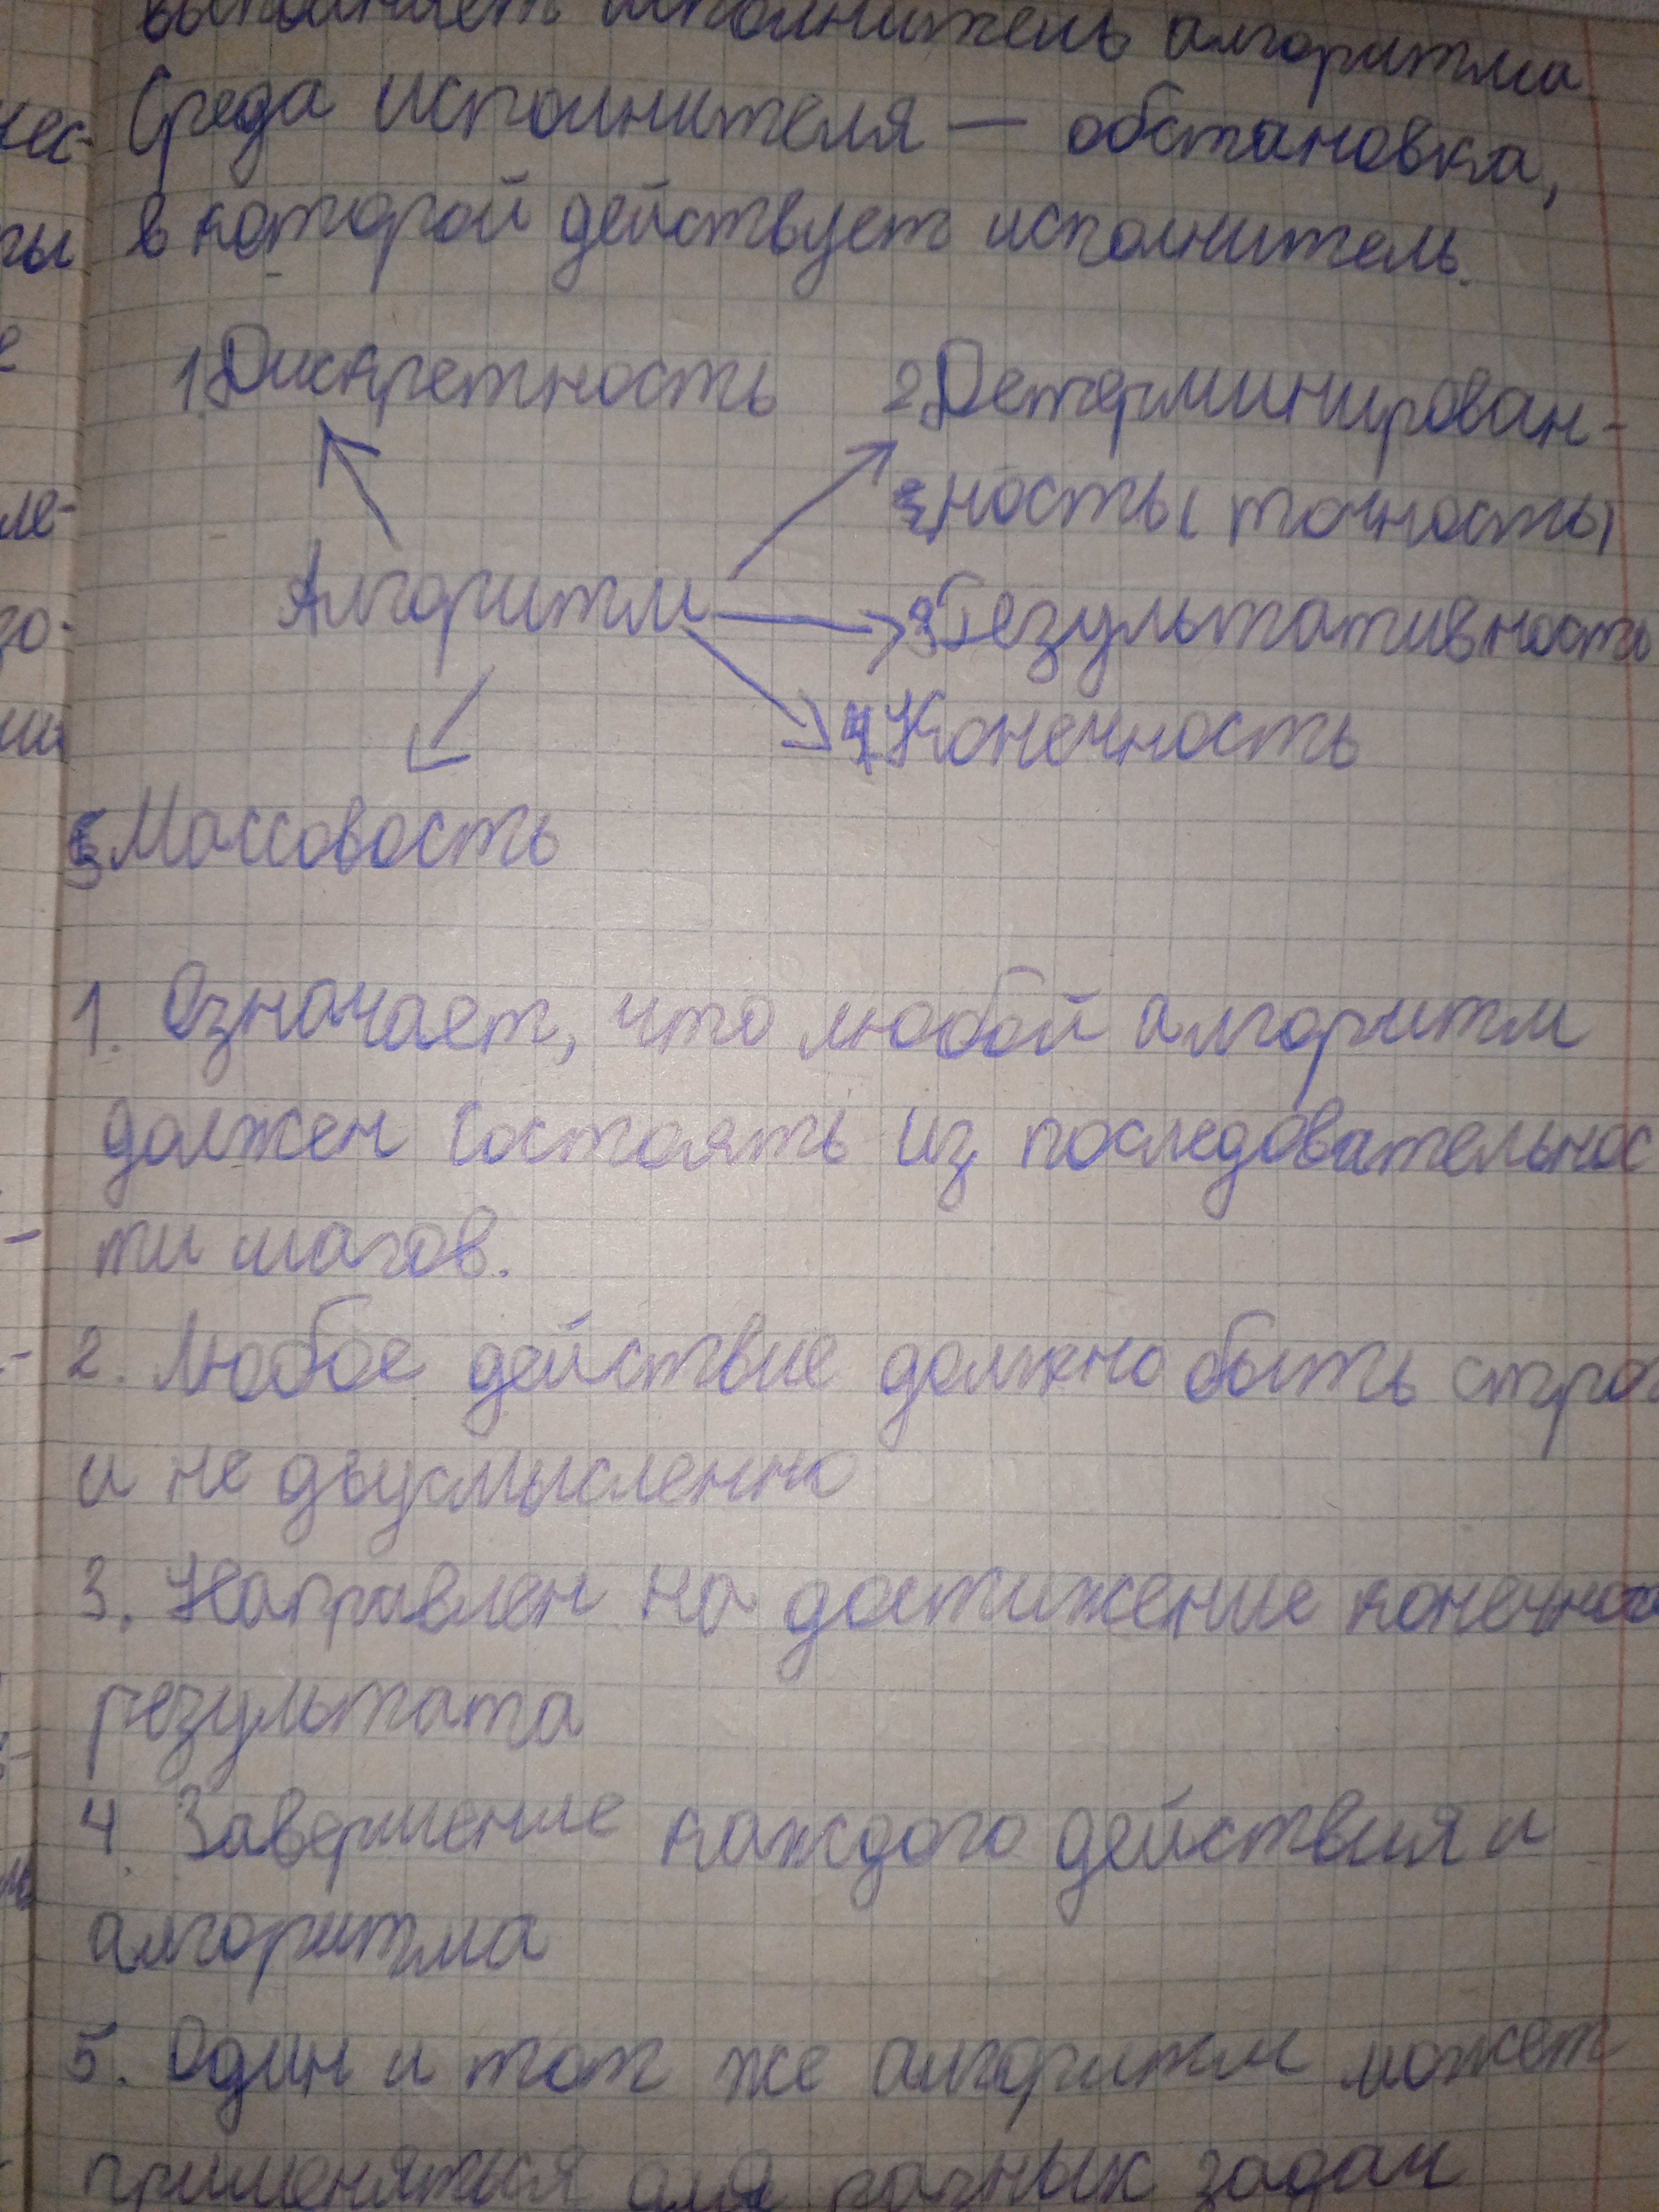 выполняет исполнитель алгоритма
Среда исполнителя — обстановка,
в которой действует исполнитель.
1. Дискретность
2. Детерминирован-
ность (точность)
Алгоритм
3. Результативность
4. Конечность
5. Массовость
1. Означает, что любой алгоритм
должен состоять из последовательнос
ти шагов.
2. Любое действие должно быть строго
и не двусмысленно
3. Направлен на достижение конечного
результата
4. Завершение каждого действия и
алгоритма
5. Один и тот же алгоритм может
применяться для разных задач